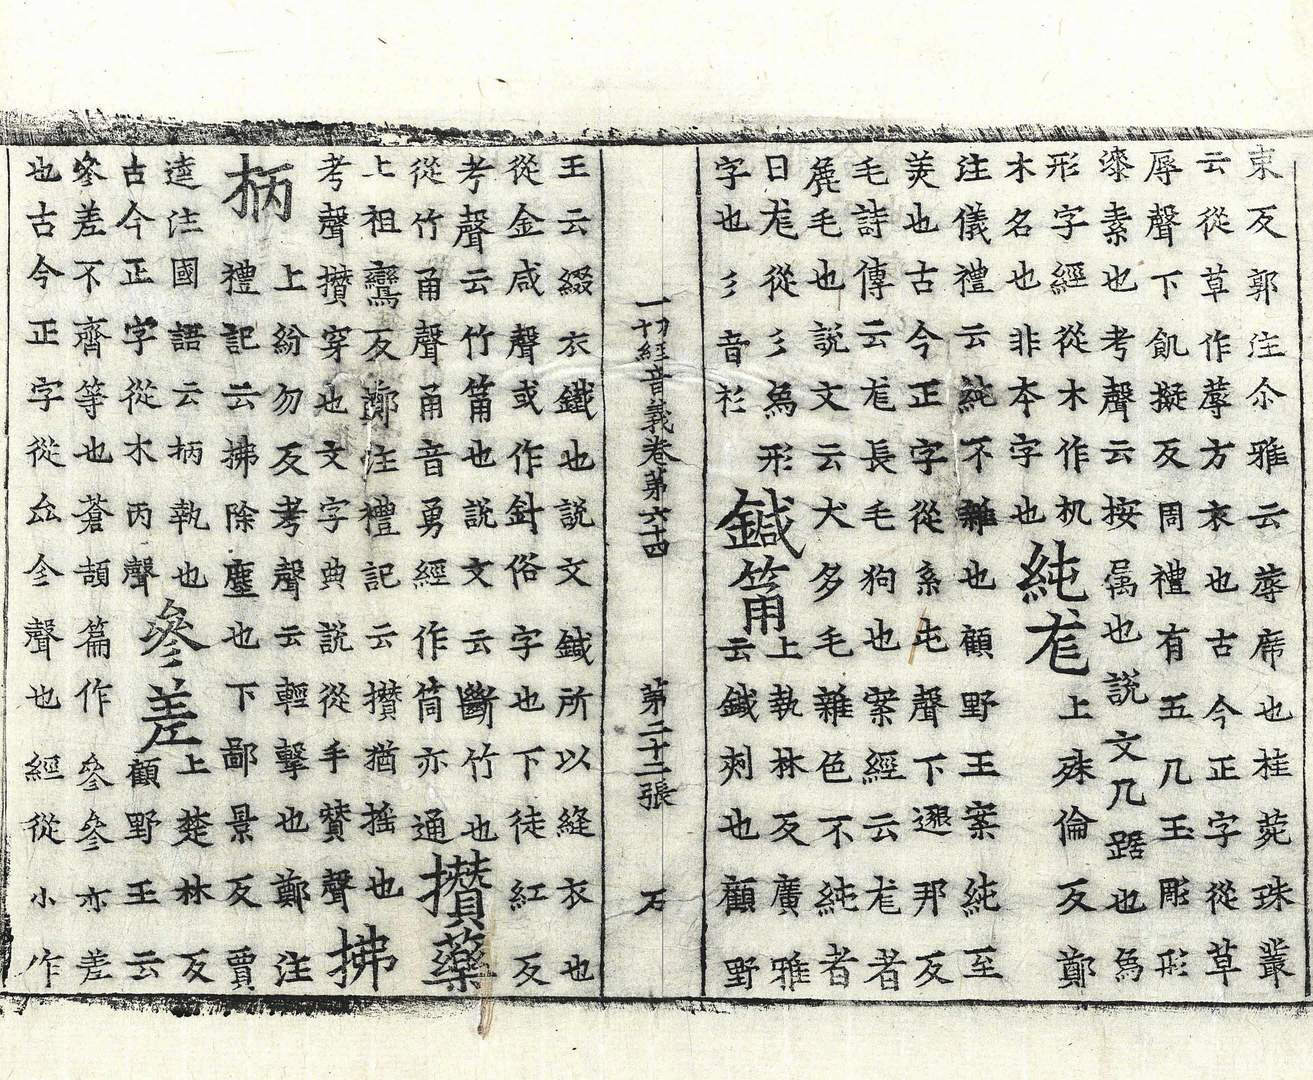 東反郭注尒雅云蓐席也桂菀珠叢
云從草作蓐方衣也古今正字從草
辱聲下飢擬反周禮有五几玉彫形
漆素也考聲云按属也説文几踞也為
形字經從木作机
木名也非夲字也
純尨
上殊倫反鄭
注儀禮云純不雜也顧野王案純至
美也古今正字從糸屯聲下邈邦反
毛詩傳云尨長毛狗也案經云尨者
麂毛也説文云犬多毛雜色不純者
日尨從彡為形
字也彡音衫
鍼筩
上執林反廣雅
云鍼刾也顧野
一切經音義卷第六十四 第二十二張
王云綴衣鐵也説文鍼所以縫衣也
從金咸聲或作針俗字也下徒紅反
考聲云竹筩也説文云斷竹也
從竹甬聲甬音勇經作筒亦通
攢藥
上祖鸞反鄭注禮記云攢猶摇也
考聲攢穿也文字典說從手贊聲
拂
柄
上紛勿反考聲云輕擊也鄭注
禮記云拂除塵也下鄙景反賈
逵注國語云柄執也
古今正字從木丙聲
參差
上楚林反
顧野王云
參差不齊等也蒼頡篇作參參亦差
也古今正字從厽㐱聲也經從小作